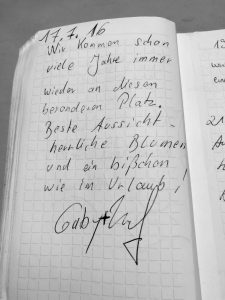 17.7.16
Wir kommen schon
viele Jahre immer
wieder an diesen
besonderen Platz.
Beste Aussicht -
herrliche Blumen
und ein bißchen
wie im Urlaub!
Gaby +